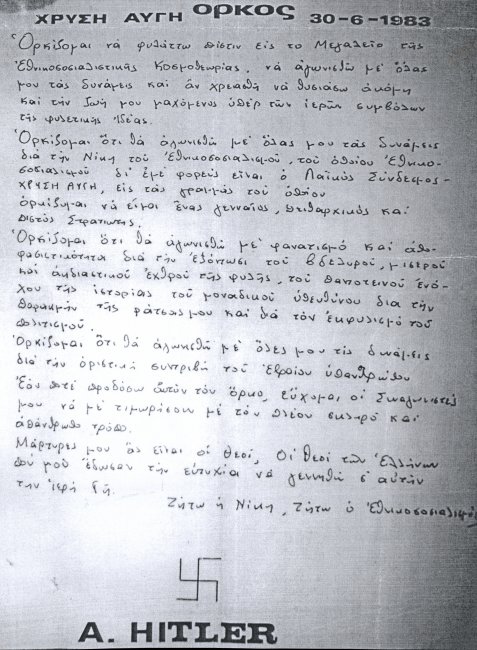 ΧΡΥΣΗ ΑΥΓΗ ΟΡΚΟΣ 30-6-1983
Ὁρκίζομαι νά φυλάττω πίστιν εἰς το Μεγαλεῖο τῆς
Ἐθνικοσοσιαλιστικῆς Κοσμοθεωρίας, νά ἀγωνισθῶ μέ ὅλας
μου τάς δυνάμεις καί ἄν χρειασθῆ νά θυσιάσω ἀκόμη
καί τήν ζωή μου μαχόμενος ὑπέρ τῶν ἱερῶν συμβόλων
τῆς φυλετικῆς Ἰδέας.
Ὁρκίζομαι ὅτι θά ἀγωνισθῶ μέ ὅλας μου τάς δυνάμεις
διά τήν Νίκη τοῦ Ἐθνικοσοσιαλισμοῦ, τοῦ ὁποίου Ἐθνικο-
σοσιαλισμοῦ δι' ἐμέ φορεύς εἶναι ὁ Λαϊκός Σύνδεσμος-
ΧΡΥΣΗ ΑΥΓΗ, εἰς τάς γραμμάς τοῦ ὁποίου
ὁρκίζομαι νά εἶμαι ἕνας γενναῖος, πειθαρχικός καί
πιστός Στρατιώτης.
Ὁρκίζομαι ὅτι θά ἀγωνισθῶ μέ φανατισμό καί ἀπο-
φασιστικότητα διά τήν ἐξόντωσι τοῦ βδελυροῦ, μισεροῦ
καί ἀηδιαστικοῦ ἐχθροῦ τῆς φυλῆς, τοῦ ταπεινοῦ ἐνό-
χου τῆς ἱστορίας τοῦ μοναδικοῦ ὑπευθύνου δια τήν
παρακμή τῆς ράτσας μου καί διά τόν ἐκφυλισμό τοῦ
πολιτισμοῦ.
Ὁρκίζομαι ὅτι θά ἀγωνισθῶ μέ ὅλες μου τίς δυνάμεις
διά τήν ὁριστική συντριβή τοῦ Ἑβραίου ὑπανθρώπου
Ἐάν ποτέ προδόσω αὐτόν τόν ὅρκο, εὔχομαι οἱ Συναγωνιστές
μου νά μέ τιμωρήσουν μέ τόν πλέον σκληρό καί
ἀπάνθρωπο τρόπο.
Μάρτυρες μου ἄς εἶναι οἱ Θεοί, Οἱ Θεοί τῶν Ἑλλήνων
πού μοῦ ἔδωσαν τήν εὐτυχία νά γεννηθῶ σ' αὐτήν
τήν ἱερή Γῆ.
Ζήτω ἡ Νίκη, Ζήτω ὁ Ἐθνικοσοσιαλισμός
A. HITLER